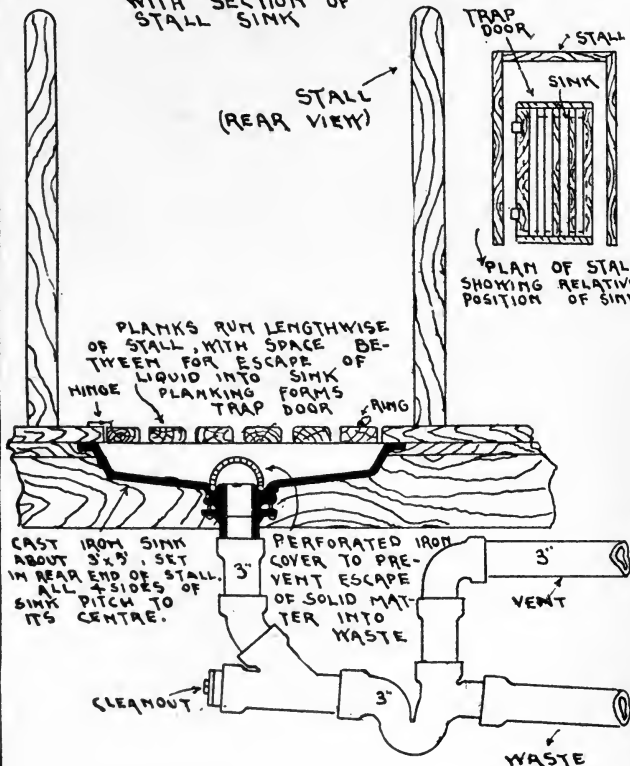 WITH SECTION OF
STALL SINK
TRAP
DOOR
STALL
SINK
STALL
(REAR VIEW)
PLAN OF STAL
SHOWING RELATIV
POSITION OF SIN
PLANKS RUN LENGTHWISE
OF STALL, WITH SPACE BE-
TWEEN FOR ESCAPE OF
LIQUID INTO SINK
PLANKING FORMS
TRAP DOOR
HINGE
RING
CAST IRON SINK
ABOUT 3'x5', SET
IN REAR END OF STALL.
ALL 4 SIDES OF
SINK PITCH TO
ITS CENTRE.
3"
PERFORATED IRON
COVER TO PRE-
VENT ESCAPE
OF SOLID MAT-
TER INTO
WASTE
3"
VENT
CLEANOUT
3"
WASTE